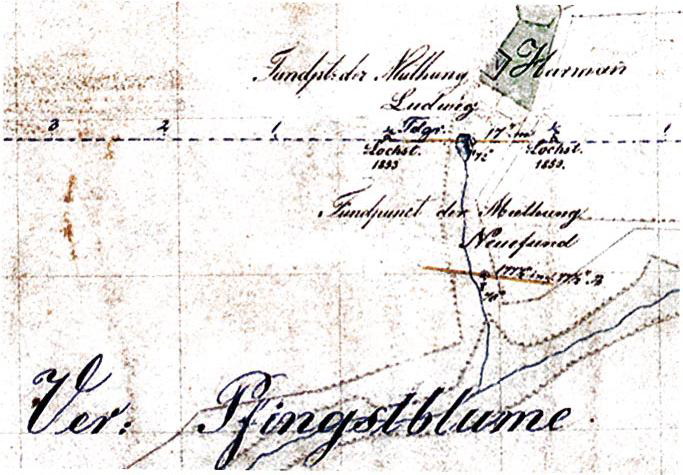 Fundpt. der Muthung Harman
Ludwig
3 2 1 Fdgr. 17 m 1
Lochst. Lochst.
1853 1853.
Fundpunct der Muthung
Neuefund
Ver: Pfingstblume.